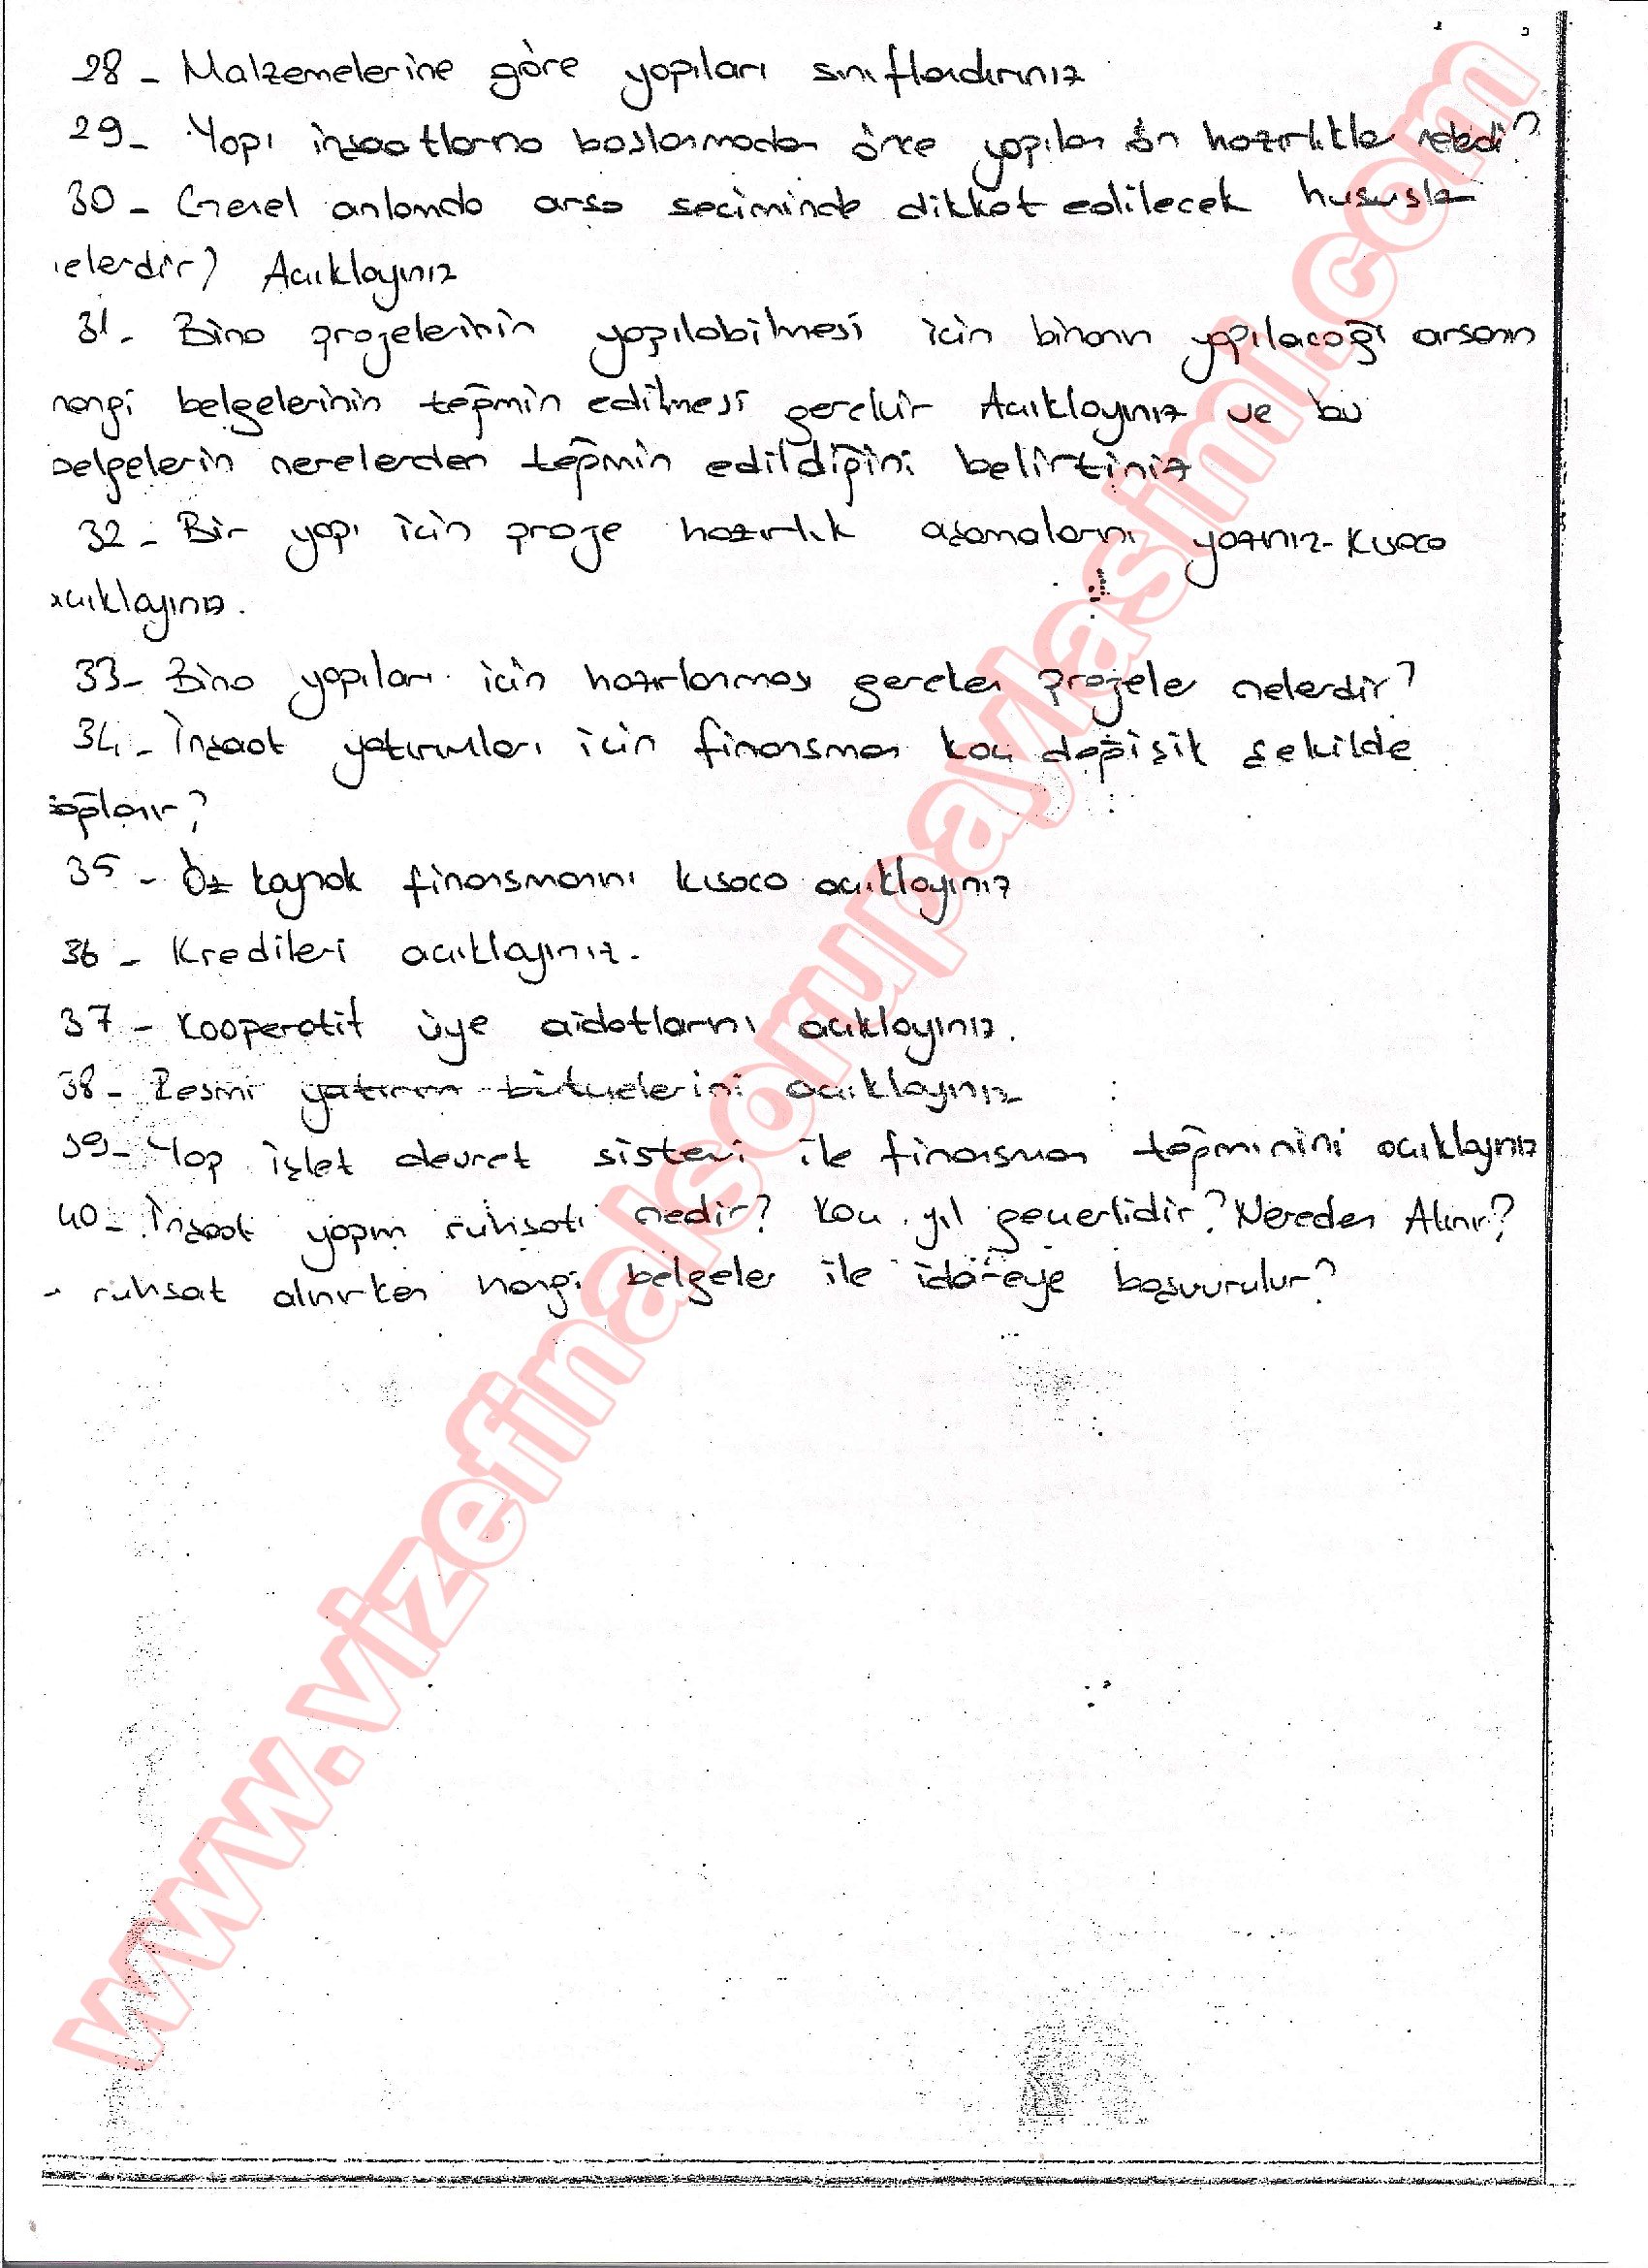 28 - Malzemelerine göre yapıları sınıflandırınız
29 - Yapı inşaatlarına başlanmadan önce yapılan ön hazırlıklar nelerdir?
30 - Genel anlamda arsa seçiminde dikkat edilecek hususlar
nelerdir? Açıklayınız
31 - Bina projelerinin yapılabilmesi için binanın yapılacağı arsanın
hangi belgelerinin teğmin edilmesi gerekir Açıklayınız ve bu
belgelerin nerelerden teğmin edildiğini belirtiniz
32 - Bir yapı için proje hazırlık aşamalarını yazınız - Kısaca
açıklayınız.
33 - Bina yapıları için hazırlanması gereken projeler nelerdir?
34 - İnşaat yatırımları için finansman kaç değişik şekilde
sağlanır?
35 - Öz kaynak finansmanını kısaca açıklayınız
36 - Kredileri açıklayınız.
37 - Kooperatif üye aidatlarını açıklayınız.
38 - Resmi yatırım bütçelerini açıklayınız
39 - Yap işlet devret sistemi ile finansman teğminini açıklayınız
40 - İnşaat yapım ruhsatı nedir? Kaç yıl geçerlidir? Nereden Alınır?
- ruhsat alınırken hangi belgeler ile idareye başvurulur?
www.vizefinalsorupaylasimi.com